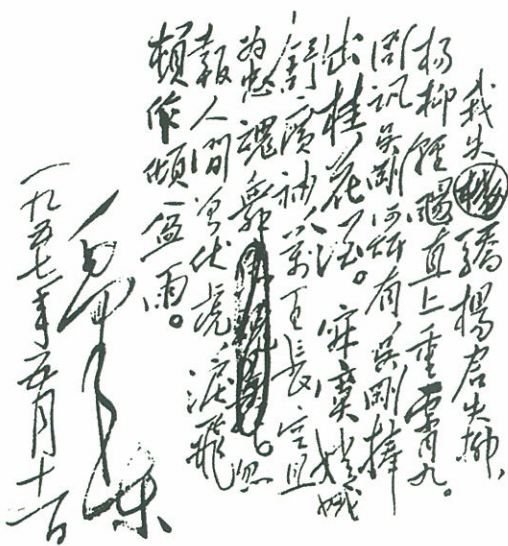 我失驕楊君失柳，
楊柳輕颺直上重霄九。
问訊吴剛何所有吴剛捧
出桂花酒。寂寞嫦娥
舒廣袖萬里長空且
为忠魂舞。忽
報人间曾伏虎，淚飛
頓作傾盆雨。
毛泽东
一九五七年五月十一日